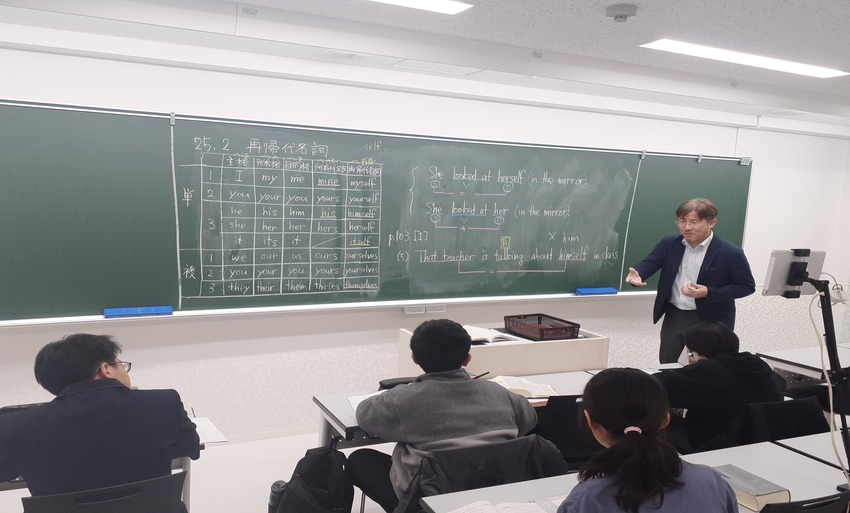 25.2 再帰代名詞 self
主格 所有格 目的格 所有代名詞 再帰代名詞
単 1 I my me mine myself
2 you your you yours yourself
3 he his him his himself
she her her hers herself
it its it itself
複 1 we our us ours ourselves
2 you your you yours yourselves
3 they their them theirs themselves
She looked at herself (in the mirror).
=
She looked at her (in the mirror).
≠
p.103 [1] × him
(5) That teacher is talking about himself in class.
=